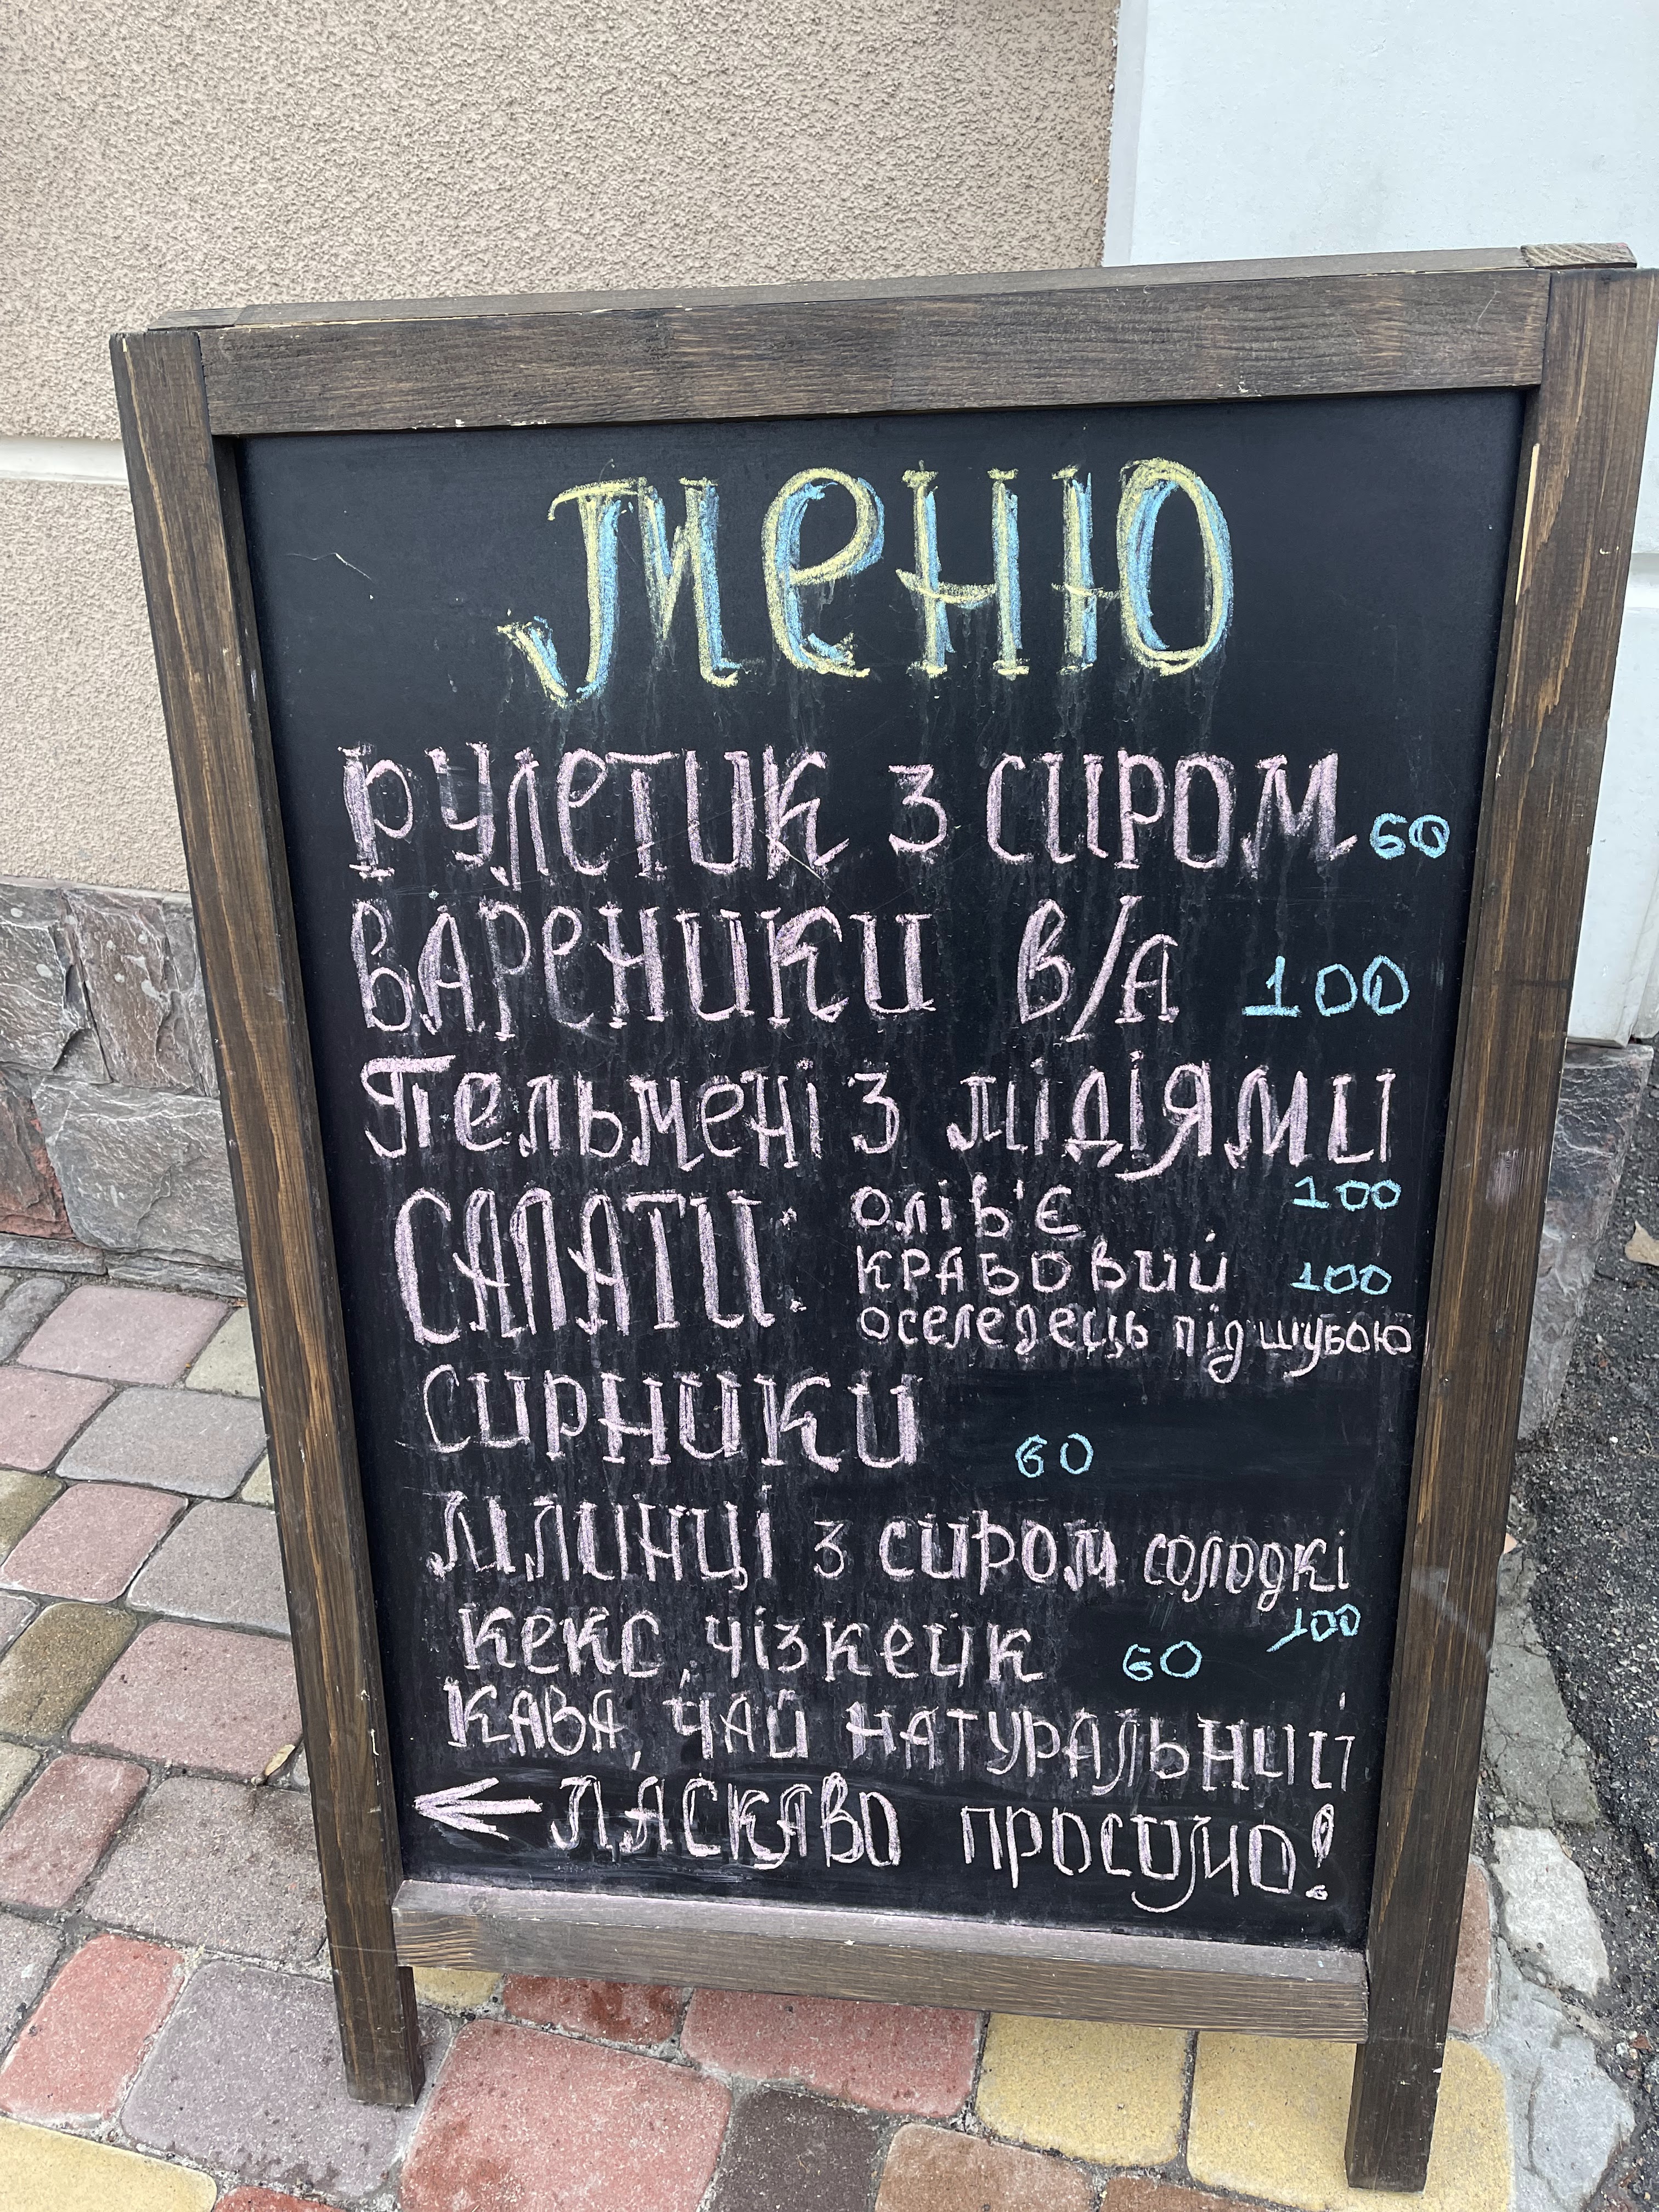 Меню
РУЛЕТИК З СИРОМ 60
ВАРЕНИКИ В/А 100
Пельмені з мідіями
САЛАТИ: олів'є 100
крабовий 100
оселедець під шубою
СИРНИКИ 60
МЛИНЦІ з сиром солодкі
100
Кекс, чізкейк 60
КАВА, ЧАЙ НАТУРАЛЬНИЙ
← ЛАСКАВО просимо!